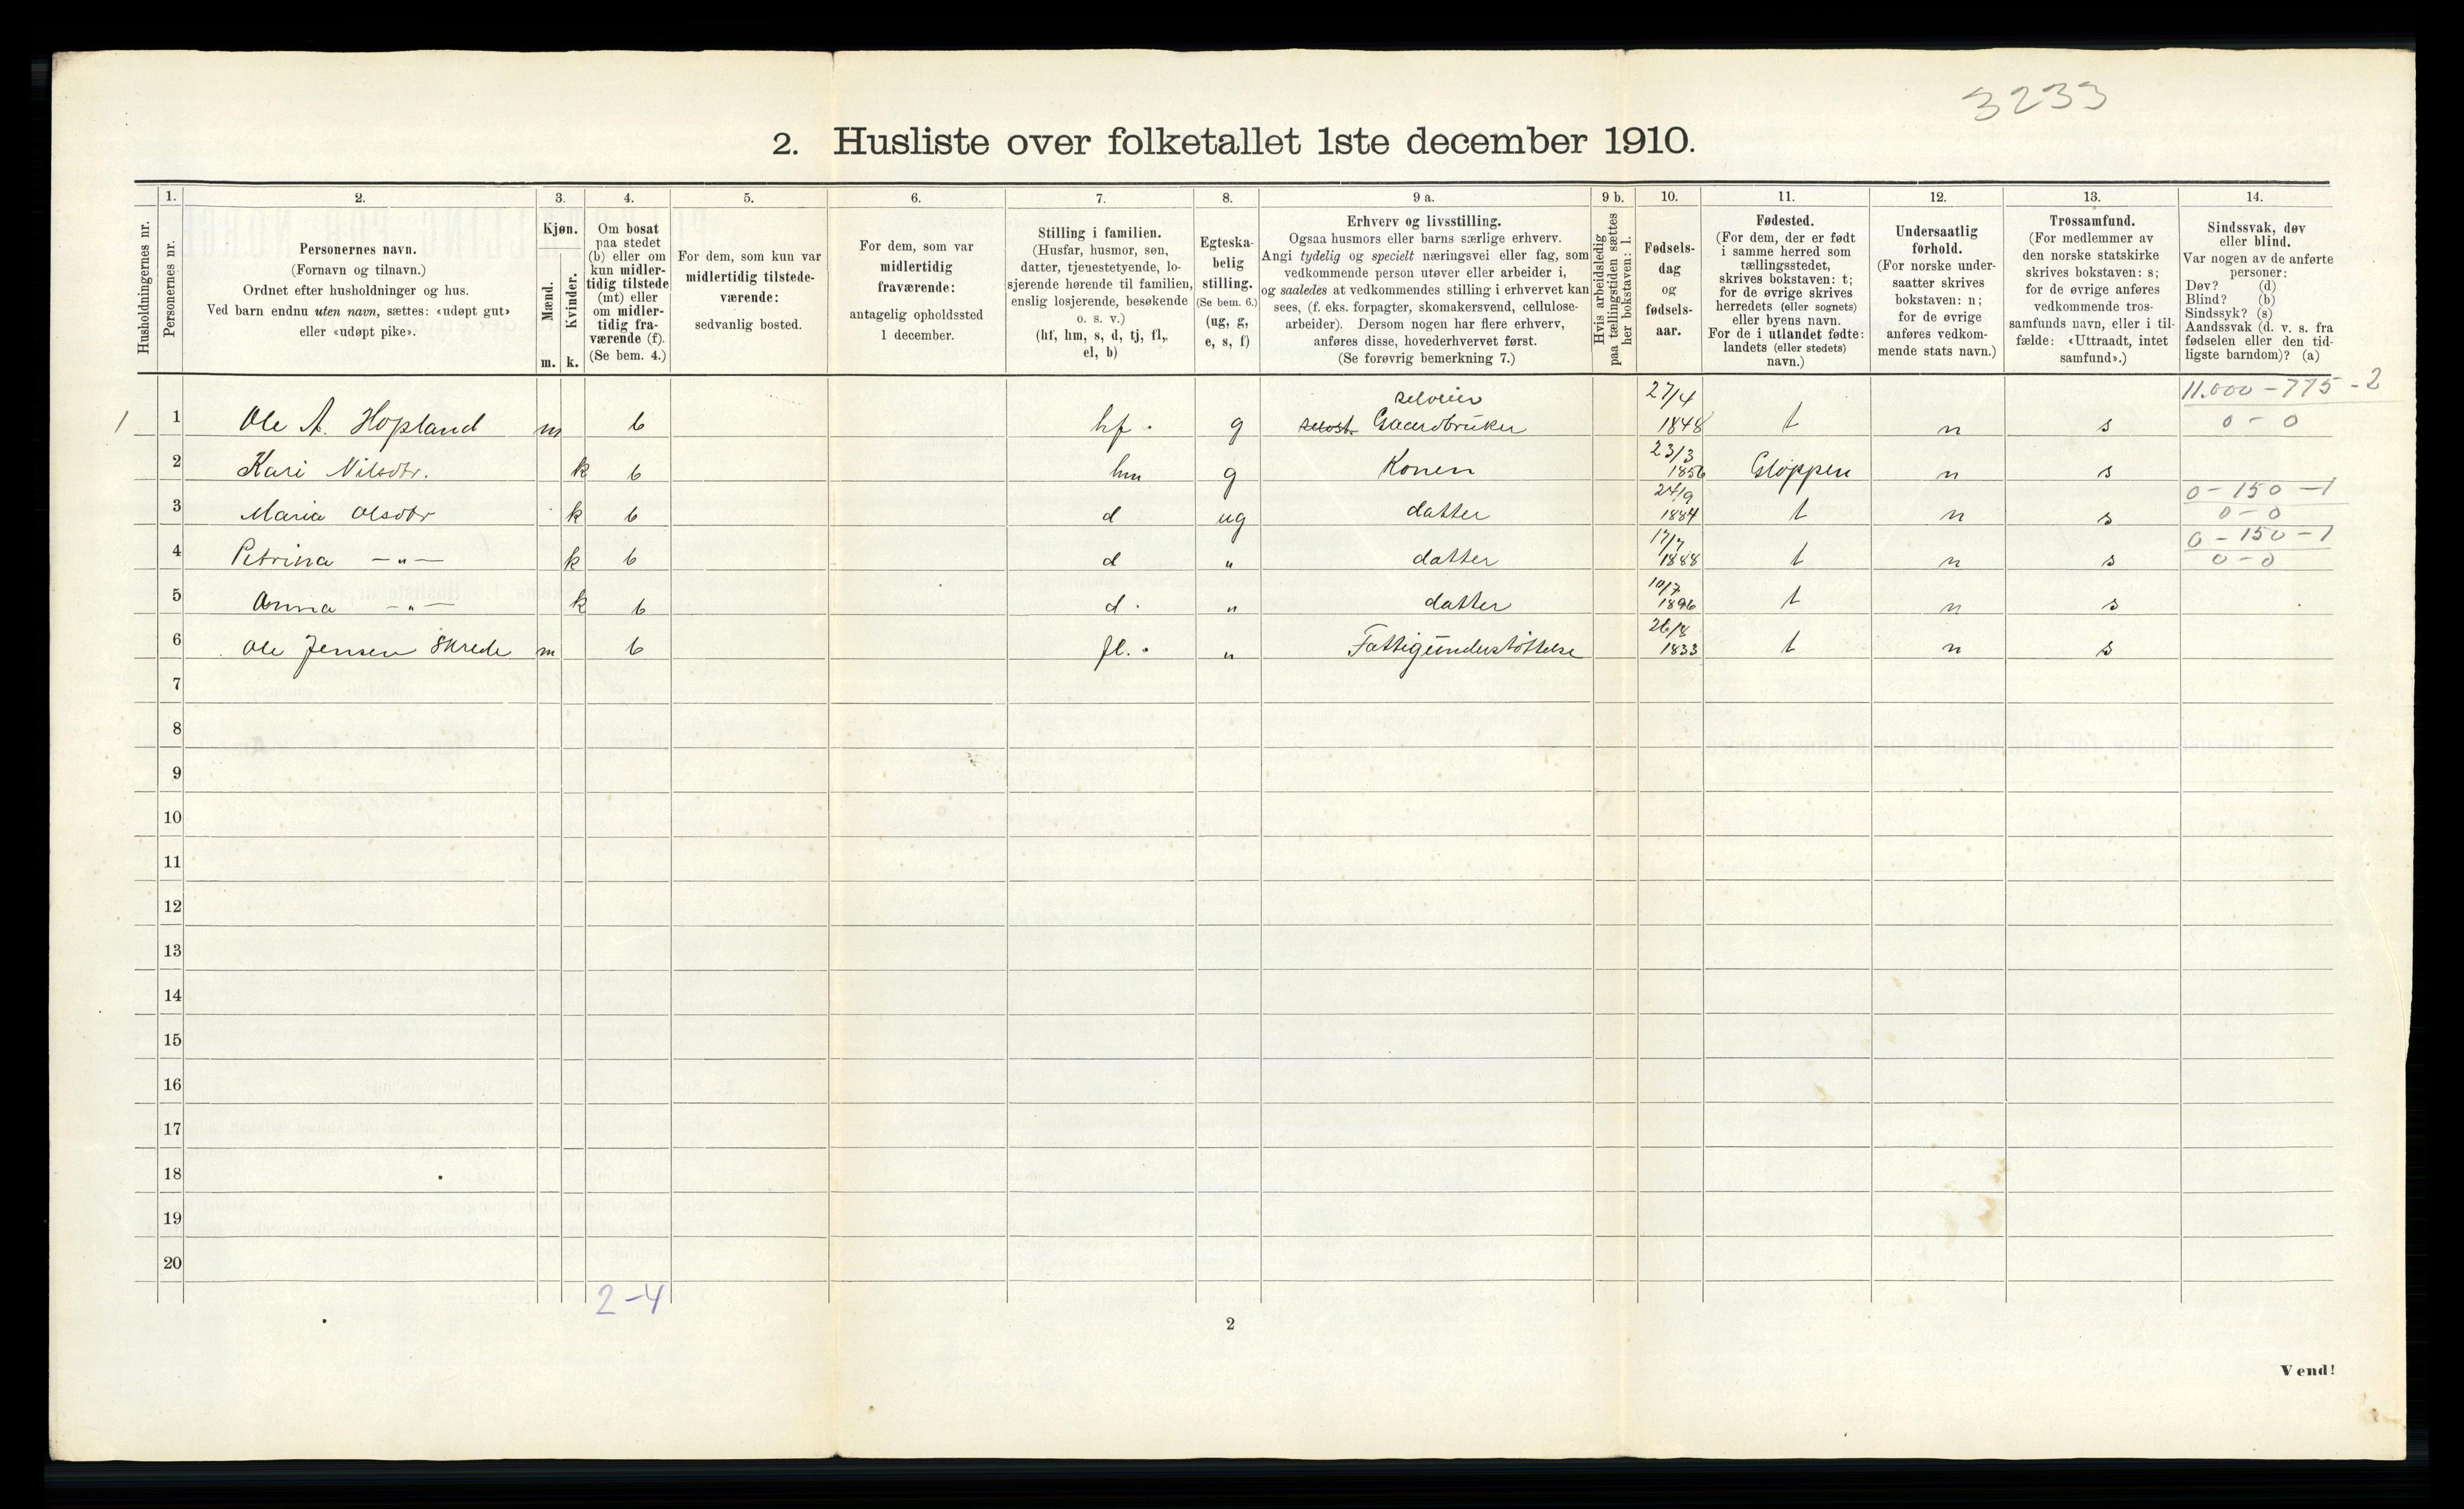 3233
2. Husliste over folketallet 1ste december 1910.
Husholdningernes nr.
1.
Personernes nr.
2.
Personernes navn.
(Fornavn og tilnavn.)
Ordnet efter husholdninger og hus.
Ved barn endnu uten navn, sættes: «udøpt gut»
eller «udøpt pike».
3.
Kjøn.
Mænd.
m.
Kvinder.
k.
4.
Om bosat
paa stedet
(b) eller om
kun midler-
tidig tilstede
(mt) eller
om midler-
tidig fra-
værende (f).
(Se bem. 4.)
5.
For dem, som kun var
midlertidig tilstede-
værende:
sedvanlig bosted.
6.
For dem, som var
midlertidig
fraværende:
antagelig opholdssted
1 december.
7.
Stilling i familien.
(Husfar, husmor, søn,
datter, tjenestetyende, lo-
sjerende hørende til familien,
enslig losjerende, besøkende
o. s. v.)
(hf, hm, s, d, tj, fl,
el, b)
8.
Egteska-
belig
stilling.
(Se bem. 6.)
(ug, g,
e, s, f)
9 a.
Erhverv og livsstilling.
Ogsaa husmors eller barns særlige erhverv.
Angi tydelig og specielt næringsvei eller fag, som
vedkommende person utøver eller arbeider i,
og saaledes at vedkommendes stilling i erhvervet kan
sees, (f. eks. forpagter, skomakersvend, cellulose-
arbeider). Dersom nogen har flere erhverv,
anføres disse, hovederhvervet først.
(Se forøvrig bemerkning 7.)
9 b.
Hvis arbeidsledig
paa tællingstiden sættes
her bokstaven: l.
10.
Fødsels-
dag
og
fødsels-
aar.
11.
Fødested.
(For dem, der er født
i samme herred som
tællingsstedet,
skrives bokstaven: t;
for de øvrige skrives
herredets (eller sognets)
eller byens navn.
For de i utlandet fødte:
landets (eller stedets)
navn.)
12.
Undersaatlig
forhold.
(For norske under-
saatter skrives
bokstaven: n;
for de øvrige
anføres vedkom-
mende stats navn.)
13.
Trossamfund.
(For medlemmer av
den norske statskirke
skrives bokstaven: s;
for de øvrige anføres
vedkommende tros-
samfunds navn, eller i til-
fælde: «Uttraadt, intet
samfund».)
14.
Sindssvak, døv
eller blind.
Var nogen av de anførte
personer:
Døv? (d)
Blind? (b)
Sindssyk? (s)
Aandssvak (d. v. s. fra
fødselen eller den tid-
ligste barndom)? (a)
selveier 27/4 11.000 – 775 – 2
1 1 Ole A. Hopland m b hf. g Gaardbruker 1848 t n s 0 – 0
2 Kari Nilsdtr. k b hm g Konen 23/3 1856 Gloppen n s
3 Maria Olsdtr k b d ug datter 24/9 1884 t n s 0 – 150 – 1 0 – 0
4 Petrina —„— k b d „ datter 17/7 1888 t n s 0 – 150 – 1 0 – 0
5 Anna —„— k b d. „ datter 10/7 1896 t n s
6 Ole Jensen Skrede m b fl. „ Fattigunderstøttelse 26/8 1833 t n s
7
8
9
10
11
12
13
14
15
16
17
18
19
20
2–4
2
Vend!